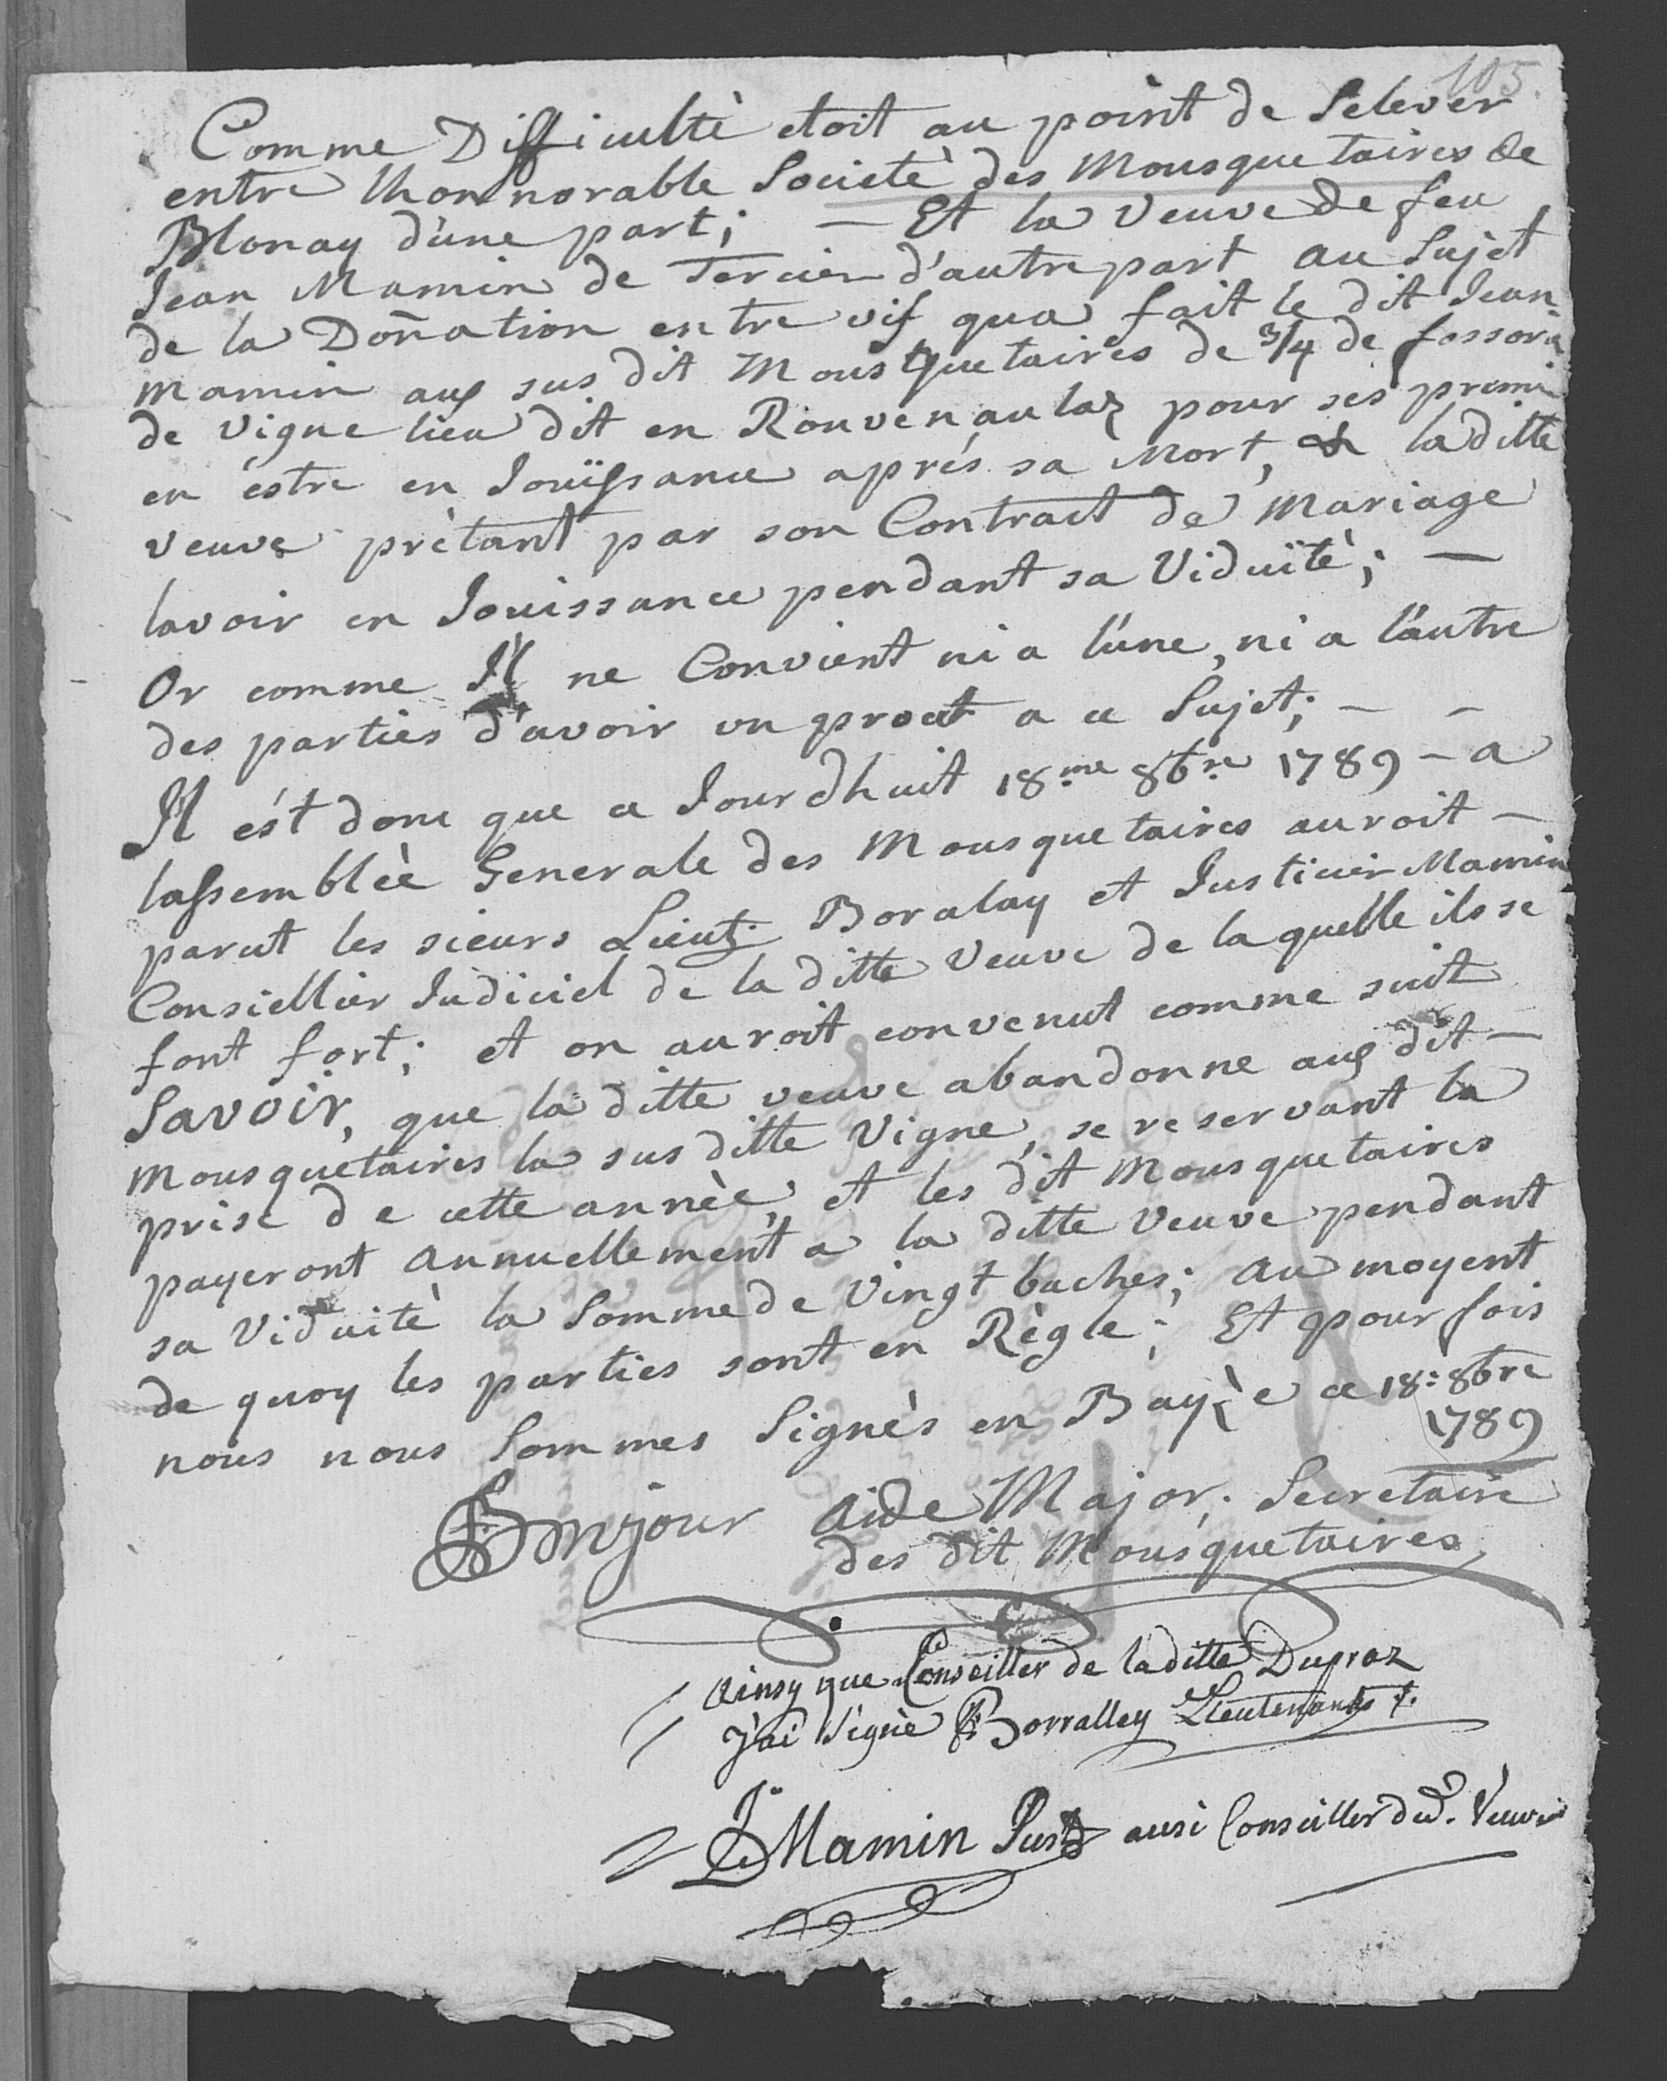 105.
Comme Difficultè etoit au point de Selever
entre Lhonnorable Societè des Mousquetaires de
Blonay d'une part; — Et la Veuve de feu
Jean Mamin de Tercier d'autre part au Sujet
de la Don̄ation entre vif qua fait le dit Jean
Mamin aux sus dit Mousquetaires de 3/4 de fossorie
de Vigne lieu dit en Rouvenaulaz pour ses premi
en éstre en Jouïssance aprés sa Mort, & la ditte
veuve prètant par son Contract de Mariage
lavoir en Jouissance pendant sa Viduitè; —
Or comme Il ne Convient ni a l'une, ni a l'autre
des parties d'avoir un procet a ce Sujet; — —
Il ést donc que ce Jourdhuit 18.me 8bre 1789 — a
lassemblèe Generale des Mousquetaires auroit —
parut les sieurs Lieut. Boralay et Justicier Mamin
Consiellier Judiciel de la ditte Veuve de la quelle ils se
font fort; et on auroit convenut comme suit
Savoir, que la ditte veuve abandonne aux dit —
Mousquetaires la sus ditte Vigne, se reservant la
prise de cette annèe, et les dit Mousquetaires
payeront annuellement a la ditte Veuve pendant
sa Viduitè la Somme de Vingt baches; au moyent
de quoy les parties sont en Règle; Et pour fois
nous nous Sommes Signès en Bayℓe ce 18: 8bre
1789
Bonjour Aide Major. Secretaire
des dit Mousquetaires
Ainsy que Conseiller de la ditte Dupraz
J'ai Signè Borralley Lieutenant
Mamin Just ausi Conseiller de d. Veuve